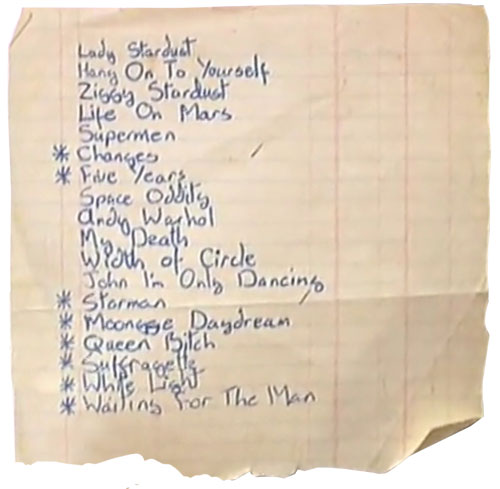 Lady Stardust
Hang On To Yourself
Ziggy Stardust
Life On Mars
Supermen
* Changes
* Five Years
Space Oddity
Andy Warhol
My Death
Width of Circle
John I'm Only Dancing
* Starman
* Moonage Daydream
* Queen Bitch
* Suffragette
* White Light
* Waiting For The Man